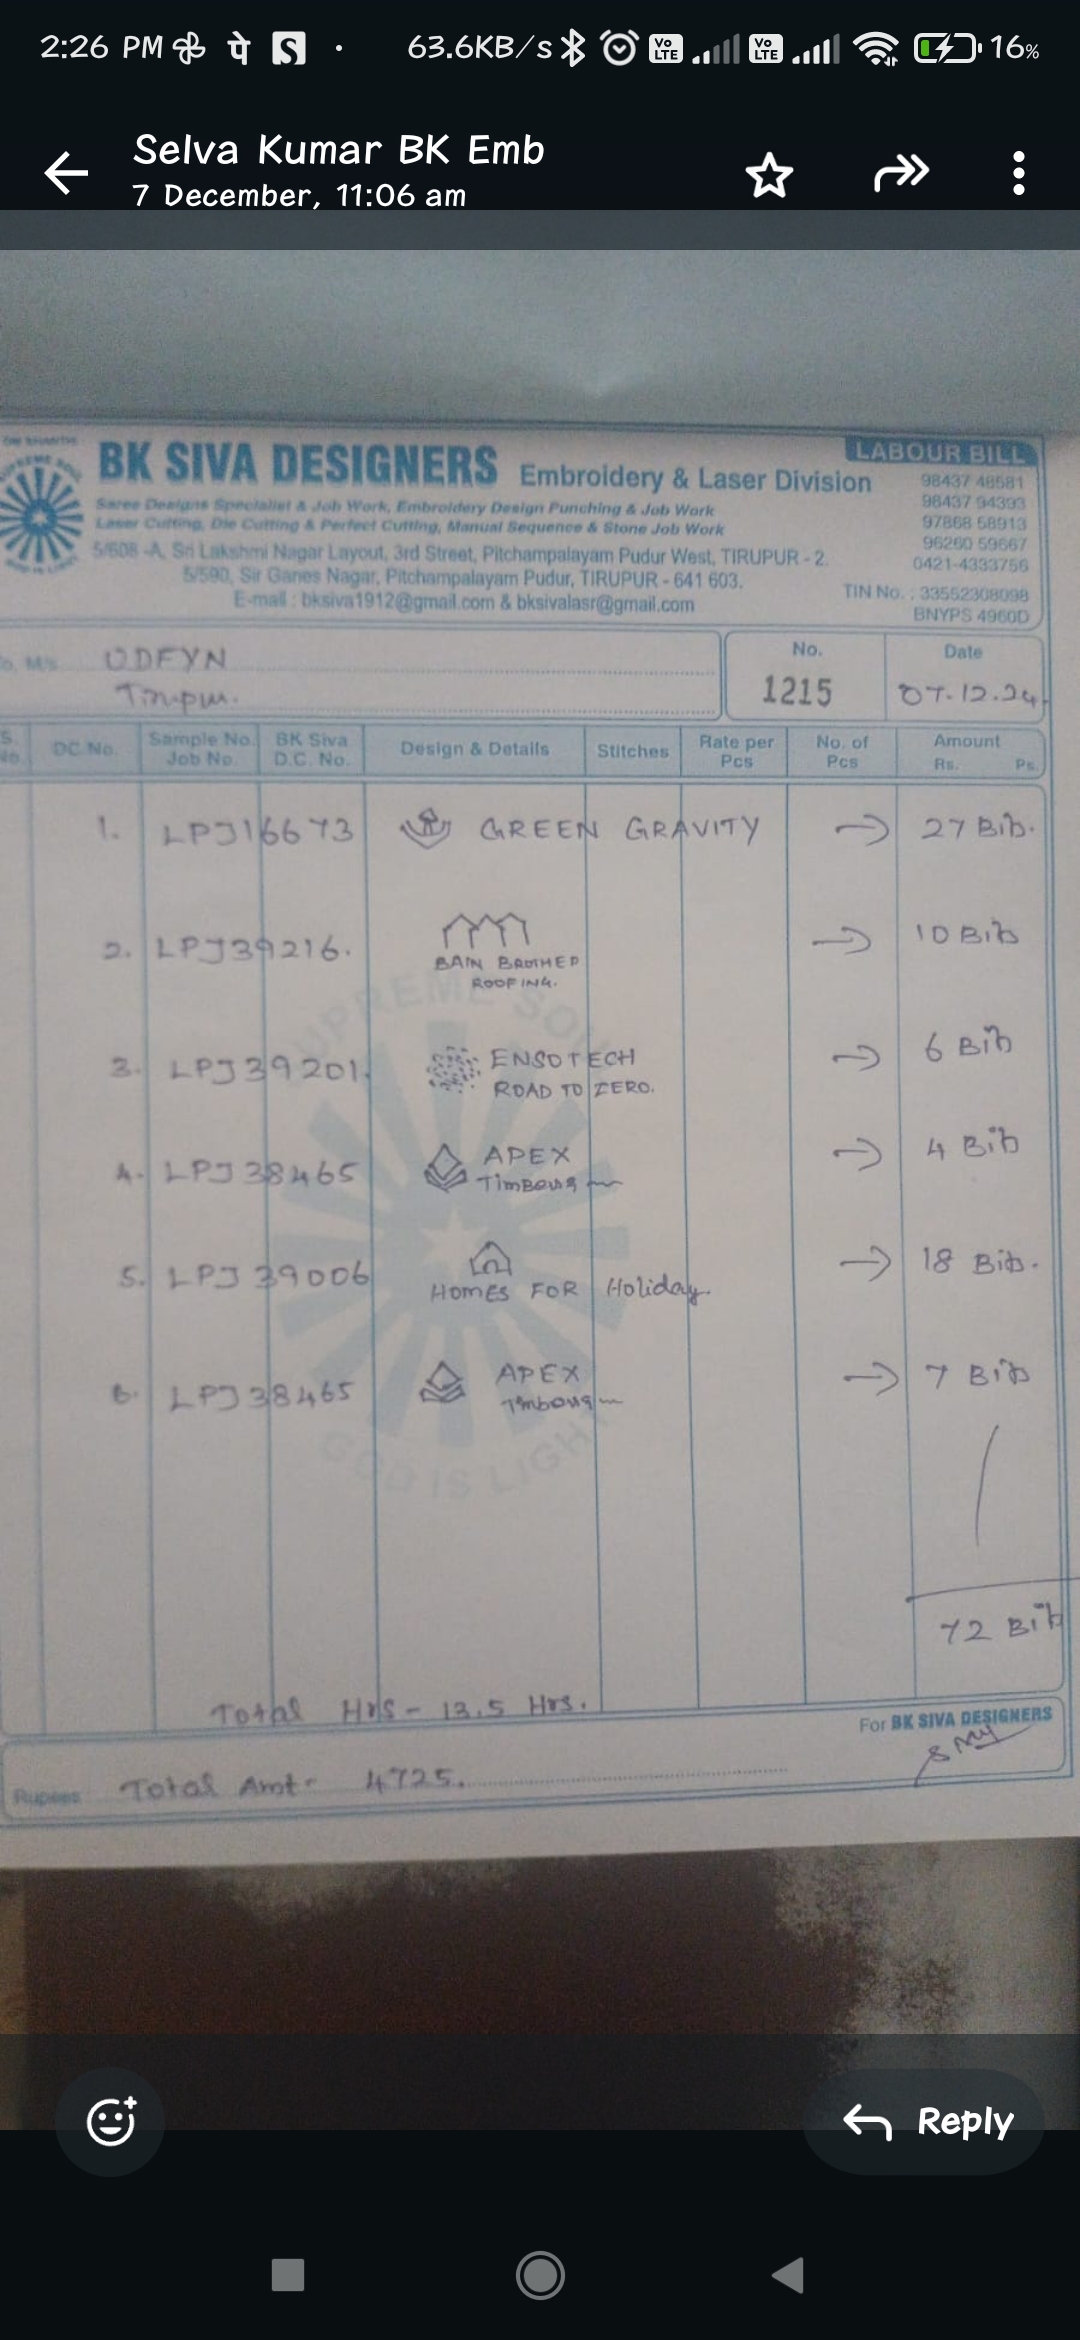 2:26 PM पे S · 63.6KB/s Vo LTE Vo LTE 16%
Selva Kumar BK Emb
7 December, 11:06 am
LABOUR BILL
BK SIVA DESIGNERS Embroidery & Laser Division
98437 48581
Saree Designs Specialist & Job Work, Embroidery Design Punching & Job Work
98437 94393
Laser Cutting, Die Cutting & Perfect Cutting, Manual Sequence & Stone Job Work
97868 58913
96260 59667
5/608 -A, Sri Lakshmi Nagar Layout, 3rd Street, Pitchampalayam Pudur West, TIRUPUR - 2.
0421-4333756
5/590, Sir Ganes Nagar, Pitchampalayam Pudur, TIRUPUR - 641 603.
TIN No. : 33552308098
E-mail : bksiva1912@gmail.com & bksivalasr@gmail.com
BNYPS 4960D
M/s UDFYN
Tirupur.
No. 1215
Date 07.12.24
S. No. DC No. Sample No. Job No. BK Siva D.C. No. Design & Details Stitches Rate per Pcs No. of Pcs Amount Rs. Ps.
1. LPJ16673 GREEN GRAVITY → 27 Bib.
2. LPJ39216. BAIN BROTHER ROOFING. → 10 Bib
3. LPJ39201. ENSOTECH ROAD TO ZERO. → 6 Bib
4. LPJ38465 APEX → 4 Bib
5. LPJ39006 HOMES FOR Holiday. → 18 Bib.
6. LPJ38465 APEX → 7 Bib
SUPREME SOUL
GOD IS LIGHT
72 Bib
Total Hrs - 13.5 Hrs.
For BK SIVA DESIGNERS
Rupees Total Amt - 4725.
Reply